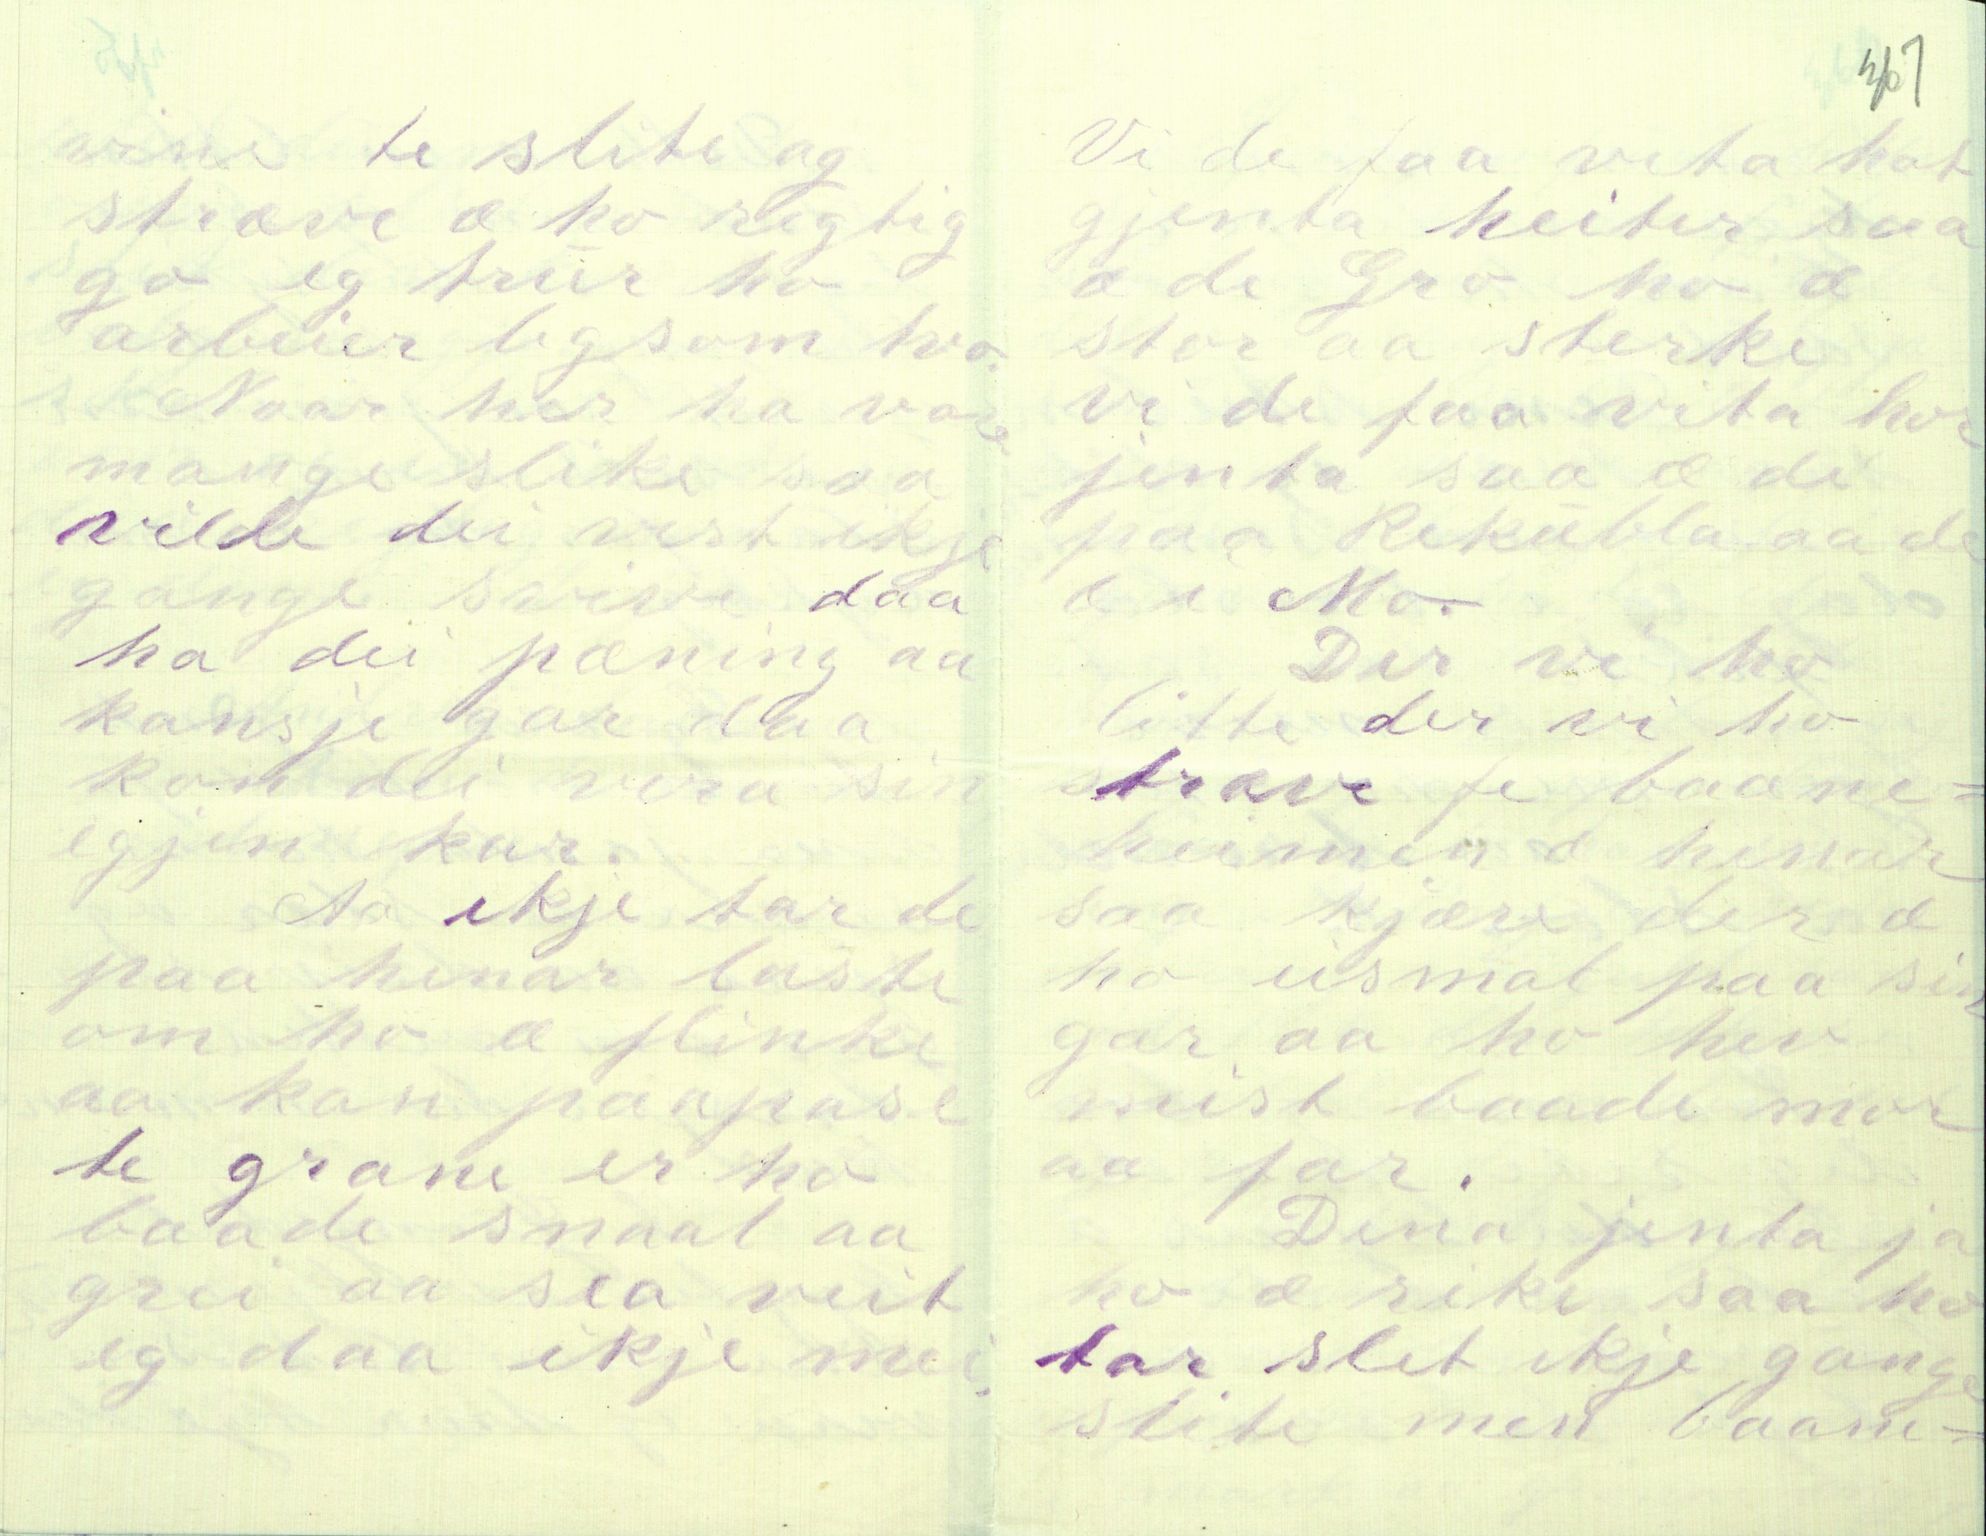 vine te slite og
stræve æ ho regtig
go eg trur ho
arbeier ligsom two.
Naar her ha vore
mange slike saa
vilde dei vist ikje
gange svive daa
ha dei pæning aa
kansje gar daa
kon dei vera sin
egjen kar.
Aa ikje tar de
paa henar laste
om ho æ flinke
aa kan paapase
te grane er ho
baade snaal aa
grei aa sea veit
eg daa ikje mei.
367
Vi de faa veta hot
gjenta heiter saa
æ de Gro ho æ
stor aa sterke
vi de faa vita hor
jenta saa æ de
paa Rekubla aa de
æ i Mo.
Der vi ho
litte der vi ho
stræve fe baane=
heimen æ henar
saa kjære der æ
ho usmal paa sin
gar aa ho hev
meist baade mor
aa far.
Dena jenta ja
ho æ rike saa ho
tar slet ikje gange
slite men baane=